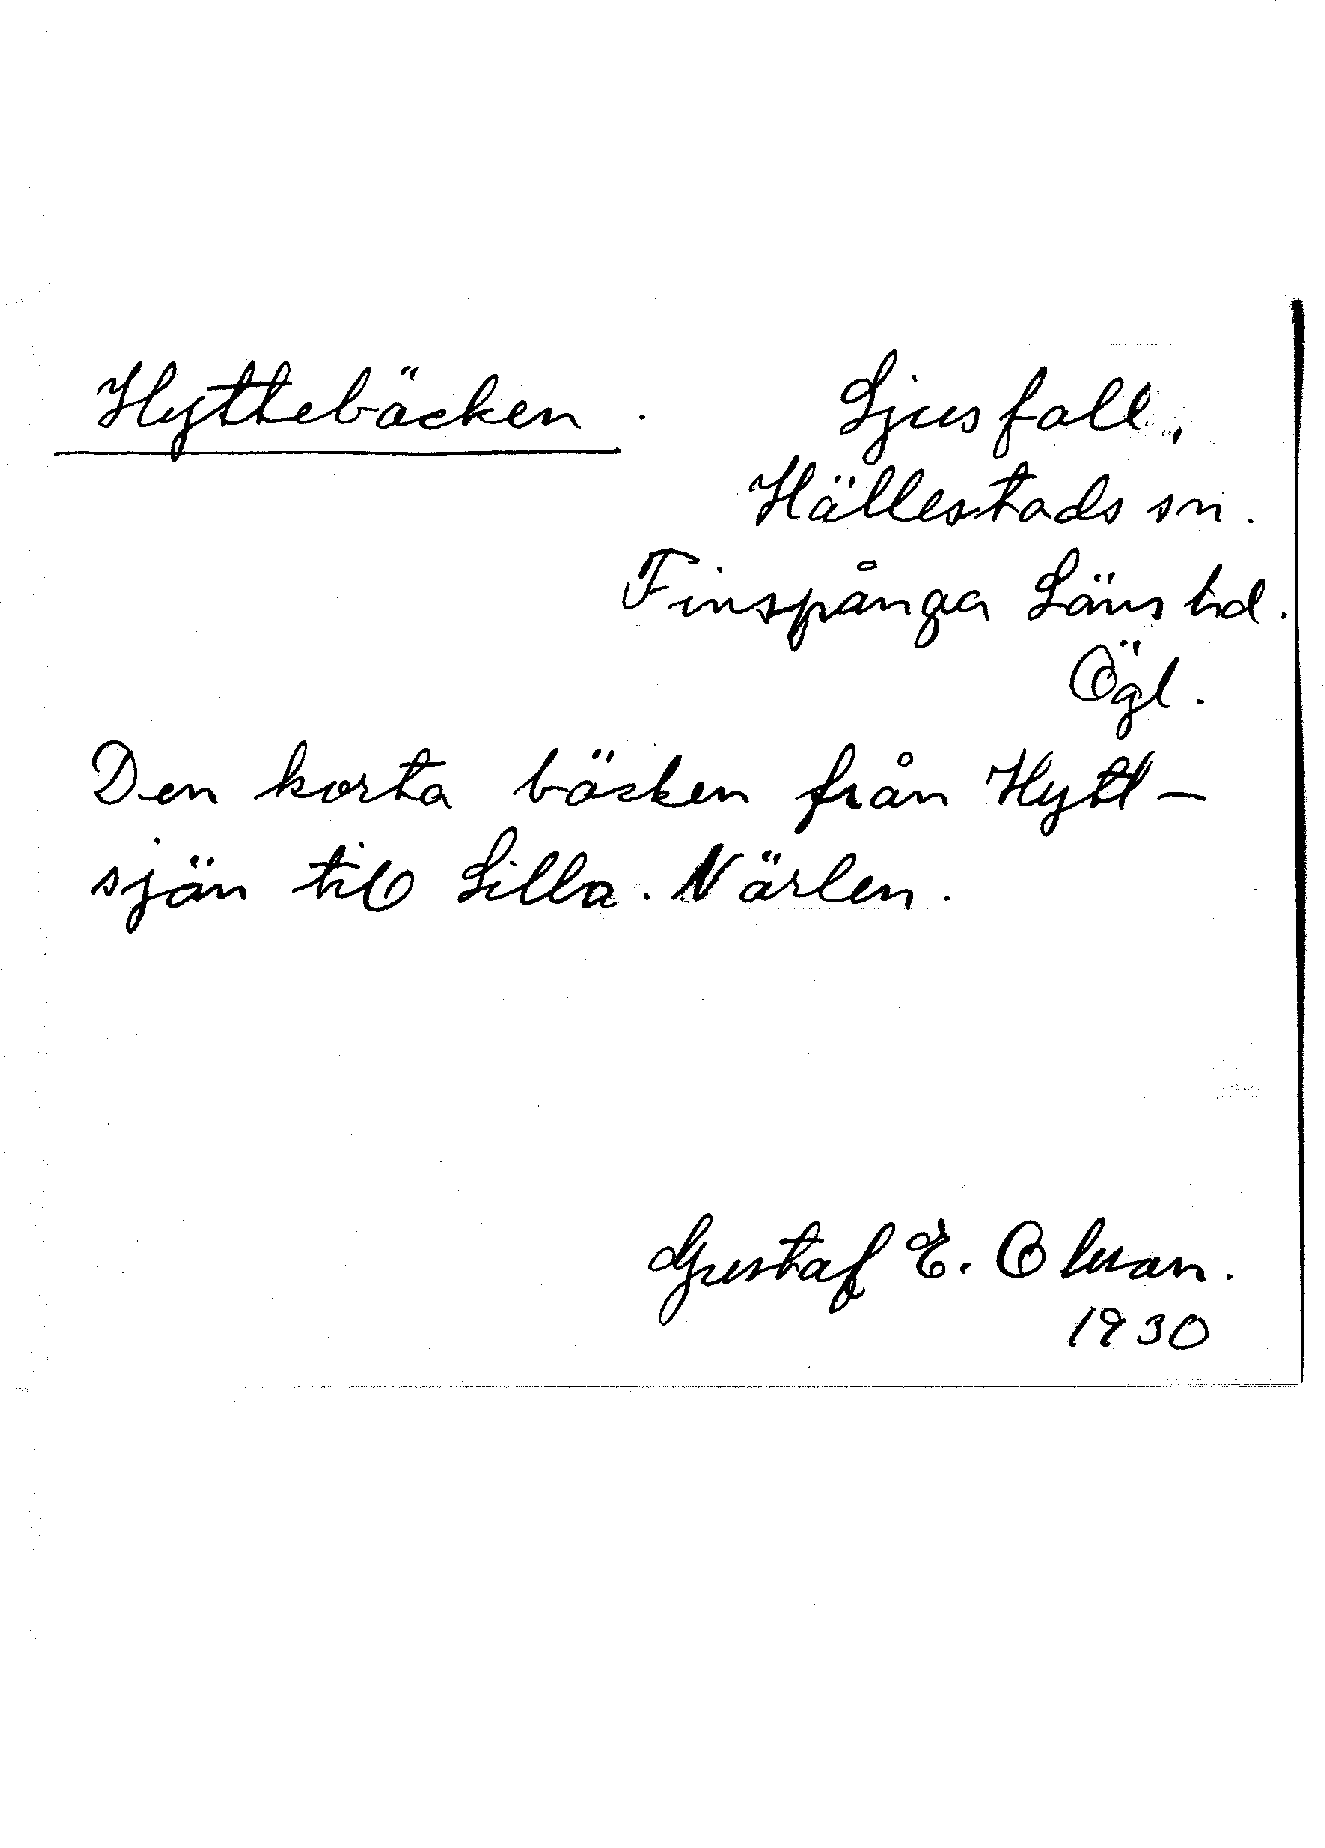 Hyttebäcken. Ljusfall,
Hällestads sn.
Finspånga Läns hd.
Ögl.
Den korta bäcken från Hytt-
sjön till Lilla Närlen.
Gustaf E. Olman.
1930